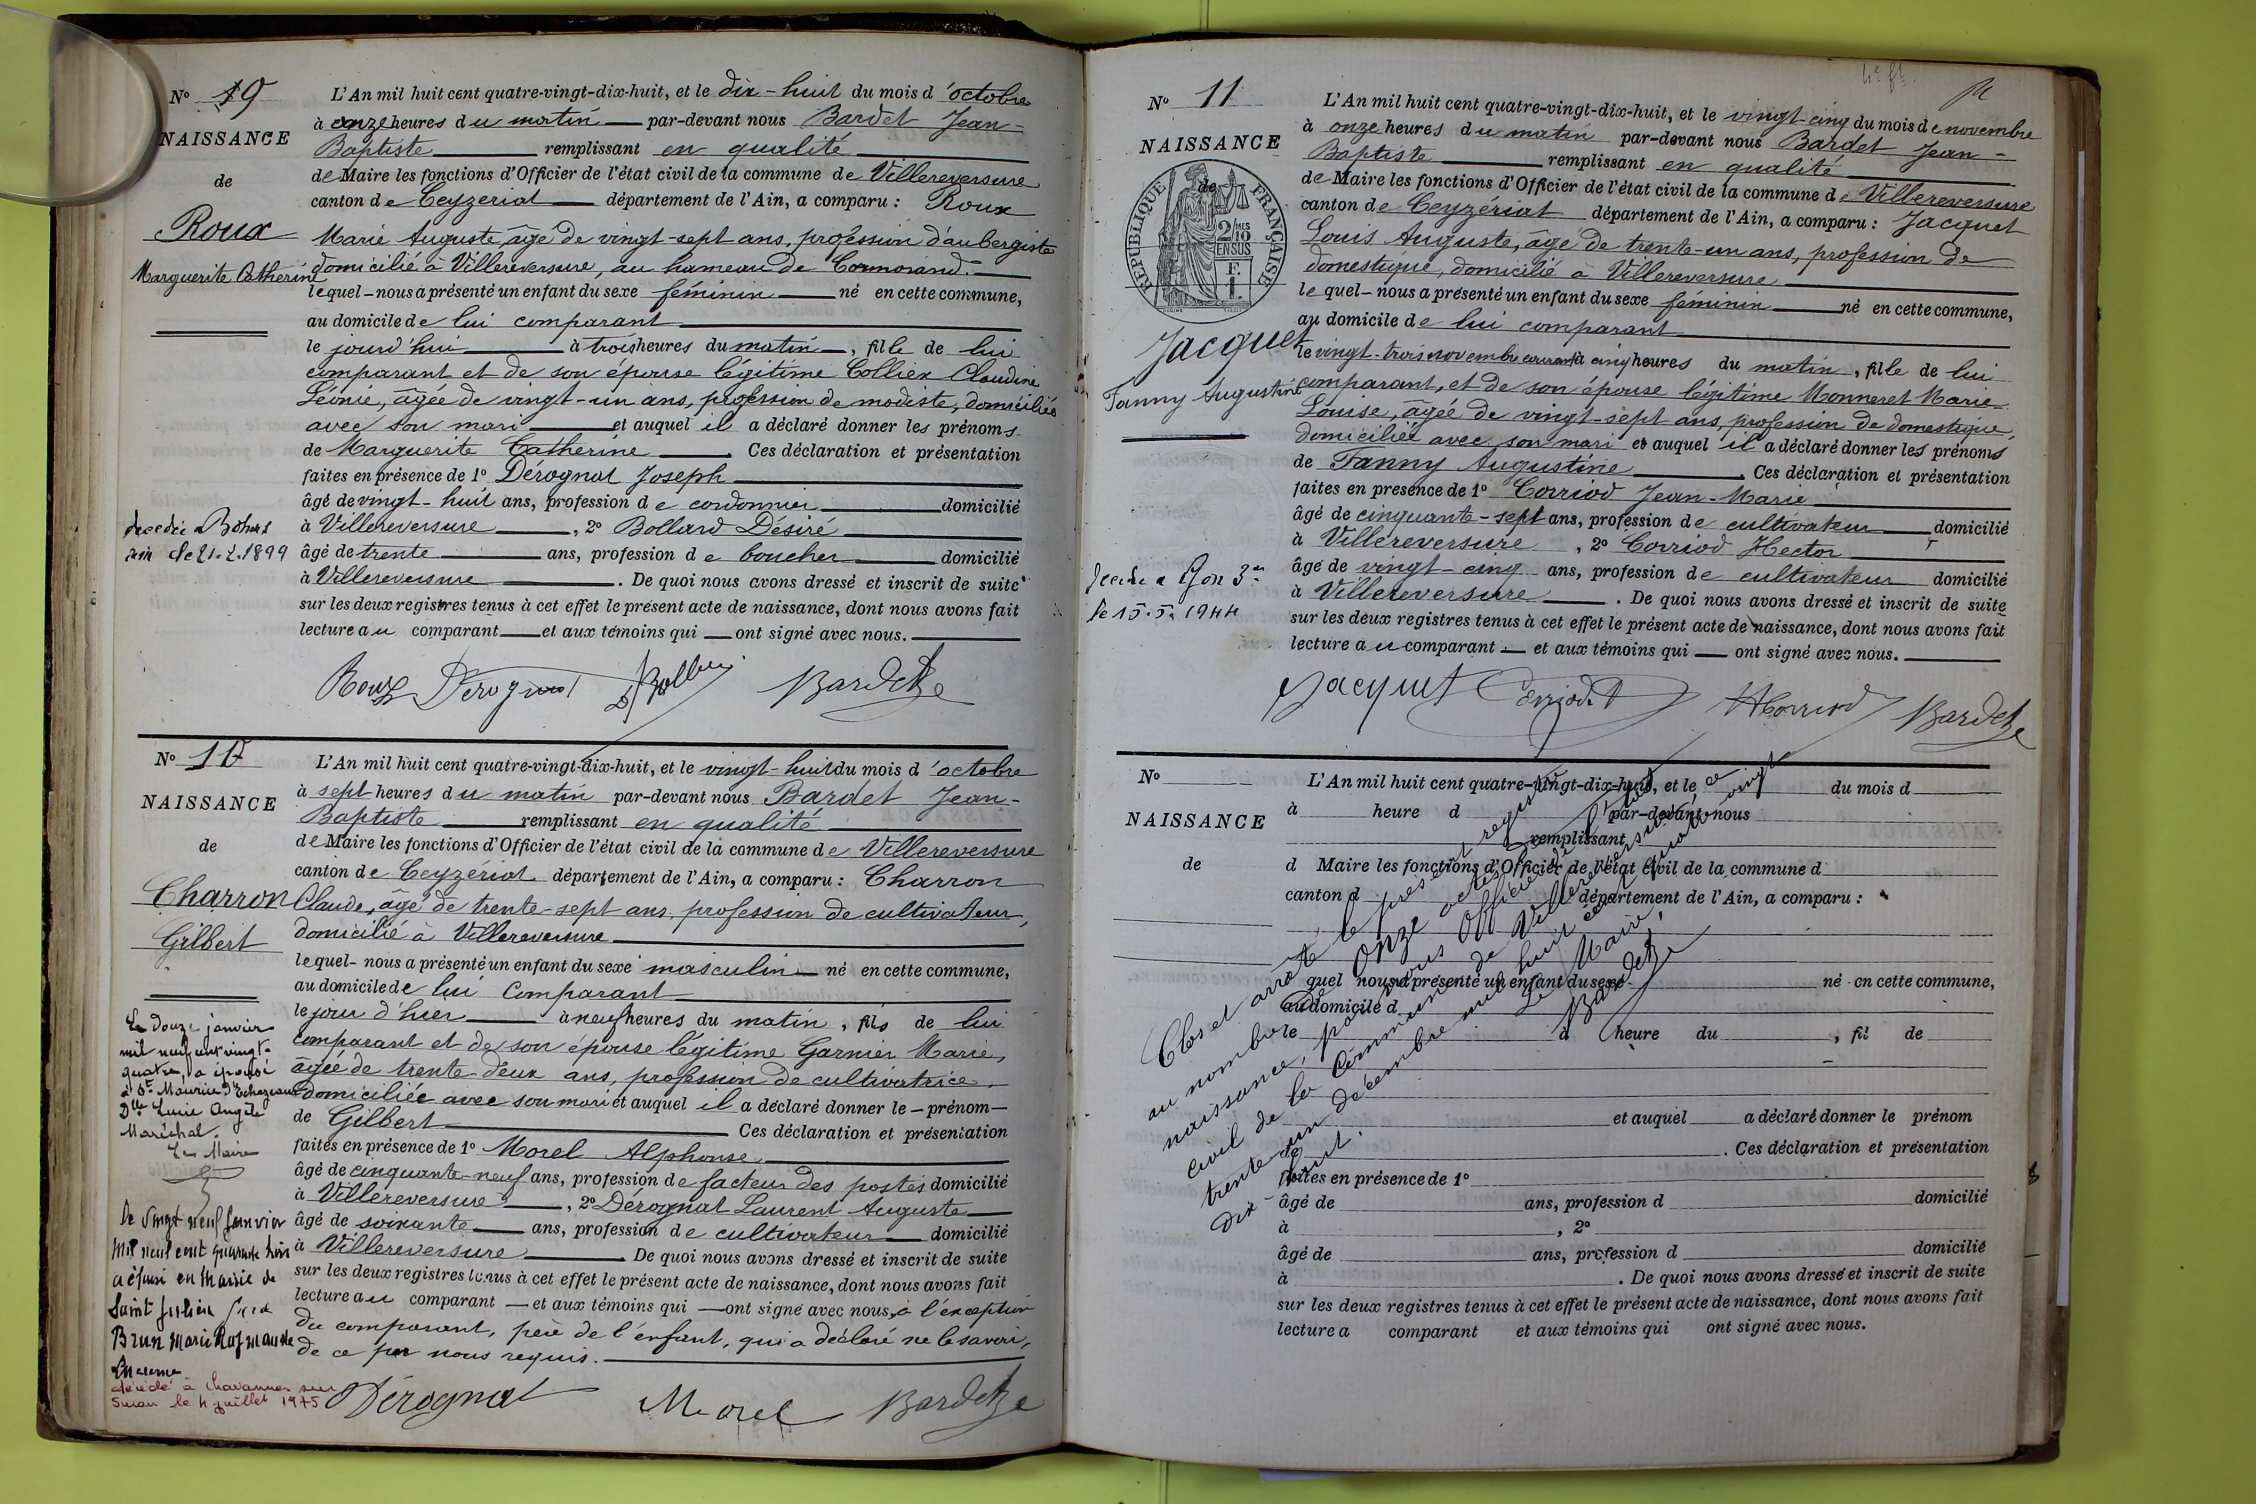 N° 9
NAISSANCE
de
Roux
Marguerite Catherine
L'An mil huit cent quatre-vingt-dix-huit, et le dix-huit du mois d'octobre
à onze heures du matin par-devant nous Bardet Jean-
Baptiste remplissant en qualité
de Maire les fonctions d'Officier de l'état civil de la commune de Villereversure
canton de Ceyzériat département de l'Ain, a comparu : Roux
Marie Auguste, âgé de vingt-sept ans, profession d'aubergiste
domicilié à Villereversure, au hameau de Cormorand.
lequel nous a présenté un enfant du sexe féminin né en cette commune,
au domicile de lui comparant
le jourd'hui à trois heures du matin, fille de lui
comparant et de son épouse légitime Collier Claudine
Léonie, âgée de vingt-un ans, profession de modiste, domiciliée
avec son mari et auquel il a déclaré donner les prénoms
de Marguerite Catherine Ces déclaration et présentation
faites en présence de 1° Dérognat Joseph
âgé de vingt-huit ans, profession de cordonnier domicilié
à Villereversure, 2° Bolland Désiré
âgé de trente ans, profession de boucher domicilié
à Villereversure. De quoi nous avons dressé et inscrit de suite
sur les deux registres tenus à cet effet le présent acte de naissance, dont nous avons fait
lecture au comparant et aux témoins qui ont signé avec nous.
décédée à Bohas
Ain le 21.2.1899
Roux Dérognat Bardet
N° 10
NAISSANCE
de
Charron
Gilbert
L'An mil huit cent quatre-vingt-dix-huit, et le vingt-huit du mois d'octobre
à sept heures du matin par-devant nous Bardet Jean-
Baptiste remplissant en qualité
de Maire les fonctions d'Officier de l'état civil de la commune de Villereversure
canton de Ceyzériat département de l'Ain, a comparu : Charron
Claude, âgé de trente-sept ans, profession de cultivateur,
domicilié à Villereversure
lequel nous a présenté un enfant du sexe masculin né en cette commune,
au domicile de lui comparant
le jour d'hier à neuf heures du matin, fils de lui
comparant et de son épouse légitime Garnier Marie,
âgée de trente-deux ans, profession de cultivatrice,
domiciliée avec son mari et auquel il a déclaré donner le prénom
de Gilbert Ces déclaration et présentation
faites en présence de 1° Morel Alphonse
âgé de cinquante-neuf ans, profession de facteur des postes domicilié
à Villereversure, 2° Dérognat Laurent Auguste
âgé de soixante ans, profession de cultivateur domicilié
à Villereversure De quoi nous avons dressé et inscrit de suite
sur les deux registres tenus à cet effet le présent acte de naissance, dont nous avons fait
lecture au comparant et aux témoins qui ont signé avec nous, à l'exception
du comparant, père de l'enfant, qui a déclaré ne le savoir,
de ce par nous requis.
Le douze janvier
mil neuf cent vingt-
quatre, a épousé
à St Maurice d'Echazeaux
Dlle Lucie Angèle
Maréchal.
Le Maire
Le vingt neuf janvier
Mil neuf cent quarante trois
a épousé en Mairie de
Saint Julien
Brun Marie
décédé à Chavannes sur
Suran le 4 juillet 1975
Dérognat Morel Bardet
N° 11
NAISSANCE
de
RÉPUBLIQUE FRANÇAISE
2/10
MES
EN SUS
Jacquet
Fanny Augustine
L'An mil huit cent quatre-vingt-dix-huit, et le vingt-cinq du mois de novembre
à onze heures du matin par-devant nous Bardet Jean-
Baptiste remplissant en qualité
de Maire les fonctions d'Officier de l'état civil de la commune de Villereversure
canton de Ceyzériat département de l'Ain, a comparu : Jacquet
Louis Auguste, âgé de trente-un ans, profession de
domestique, domicilié à Villereversure
lequel nous a présenté un enfant du sexe féminin né en cette commune,
au domicile de lui comparant
le vingt-trois novembre courant à cinq heures du matin, fille de lui
comparant, et de son épouse légitime Monneret Marie
Louise, âgée de vingt-sept ans, profession de domestique,
domiciliée avec son mari et auquel il a déclaré donner les prénoms
de Fanny Augustine Ces déclaration et présentation
faites en présence de 1° Corriod Jean-Marie
âgé de cinquante-sept ans, profession de cultivateur domicilié
à Villereversure, 2° Corriod Hector
âgé de vingt-cinq ans, profession de cultivateur domicilié
à Villereversure. De quoi nous avons dressé et inscrit de suite
sur les deux registres tenus à cet effet le présent acte de naissance, dont nous avons fait
lecture au comparant et aux témoins qui ont signé avec nous.
décédée à Lyon 3e
le 15.5.1944
Jacquet Corriod H Corriod Bardet
N°
NAISSANCE
de
L'An mil huit cent quatre-vingt-dix-huit, et le du mois d
à heure d par-devant nous
remplissant
d Maire les fonctions d'Officier de l'état civil de la commune d
canton d département de l'Ain, a comparu :
quel nous a présenté un enfant du sexe né en cette commune,
au domicile d
le à heure du , fil de
et auquel a déclaré donner le prénom
. Ces déclaration et présentation
faites en présence de 1°
âgé de ans, profession d domicilié
à , 2°
âgé de ans, profession d domicilié
à . De quoi nous avons dressé et inscrit de suite
sur les deux registres tenus à cet effet le présent acte de naissance, dont nous avons fait
lecture a comparant et aux témoins qui ont signé avec nous.
Clos et arrêté le présent registre
au nombre de onze actes de
naissance, par nous Officier de l'état
civil de la Commune de Villereversure, ce
trente-un décembre mil huit cent quatre-vingt
dix-huit.
Le Maire,
Bardet